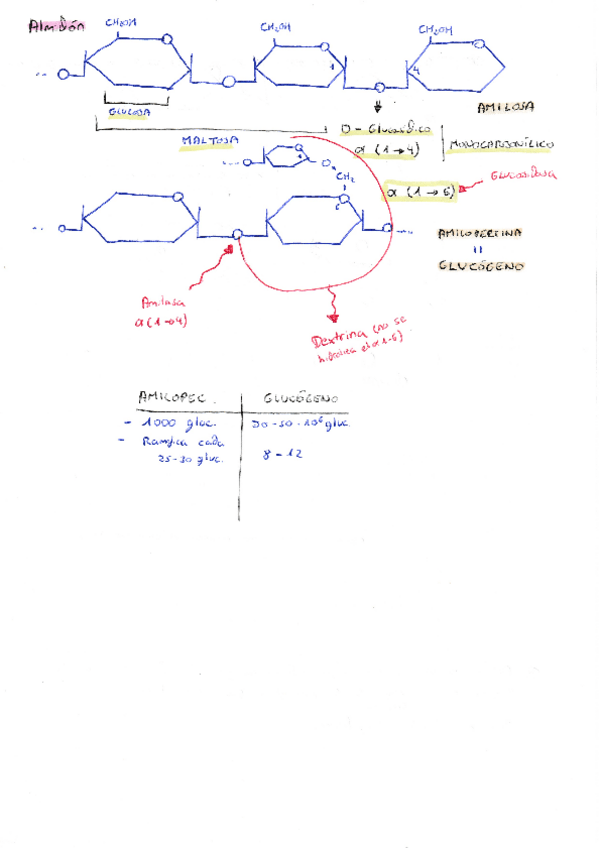 Almidón
CH₂OH CH₂OH CH₂OH
1 4
GLUCOSA
AMILOSA
MALTOSA
O-Glucosídico
α (1→4)
MONOCARBONÍLICO
O
CH₂
α (1→6)
GLUCOSIDASA
6
AMILOPECTINA
=
GLUCÓGENO
Amilasa
α(1→4)
Dextrina (no se
hidroliza el α1-6)
AMILOPEC. GLUCÓGENO
- 1000 gluc. 30-50·10⁶ gluc.
- Ramifica cada
25-30 gluc. 8-12